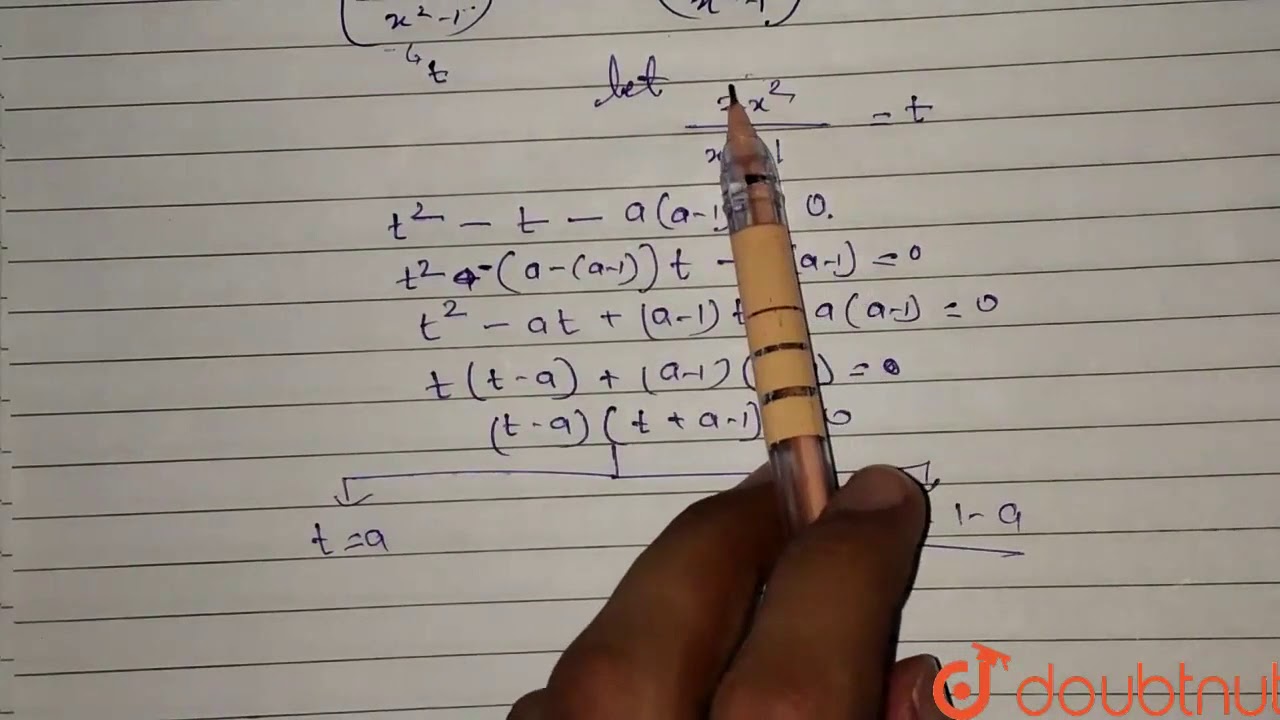 x² - 1
t
let x² = t
t² - t - a(a-1) 0.
t² - (a-(a-1))t - (a-1) = 0
t² - at + (a-1)t a(a-1) = 0
t(t-a) + (a-1)( ) = 0
(t-a)(t+a-1) 0
t = a 1-a
doubtnut